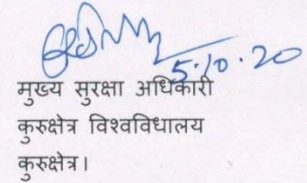 5.10.20
मुख्य सुरक्षा अधिकारी
कुरुक्षेत्र विश्वविधालय
कुरुक्षेत्र।